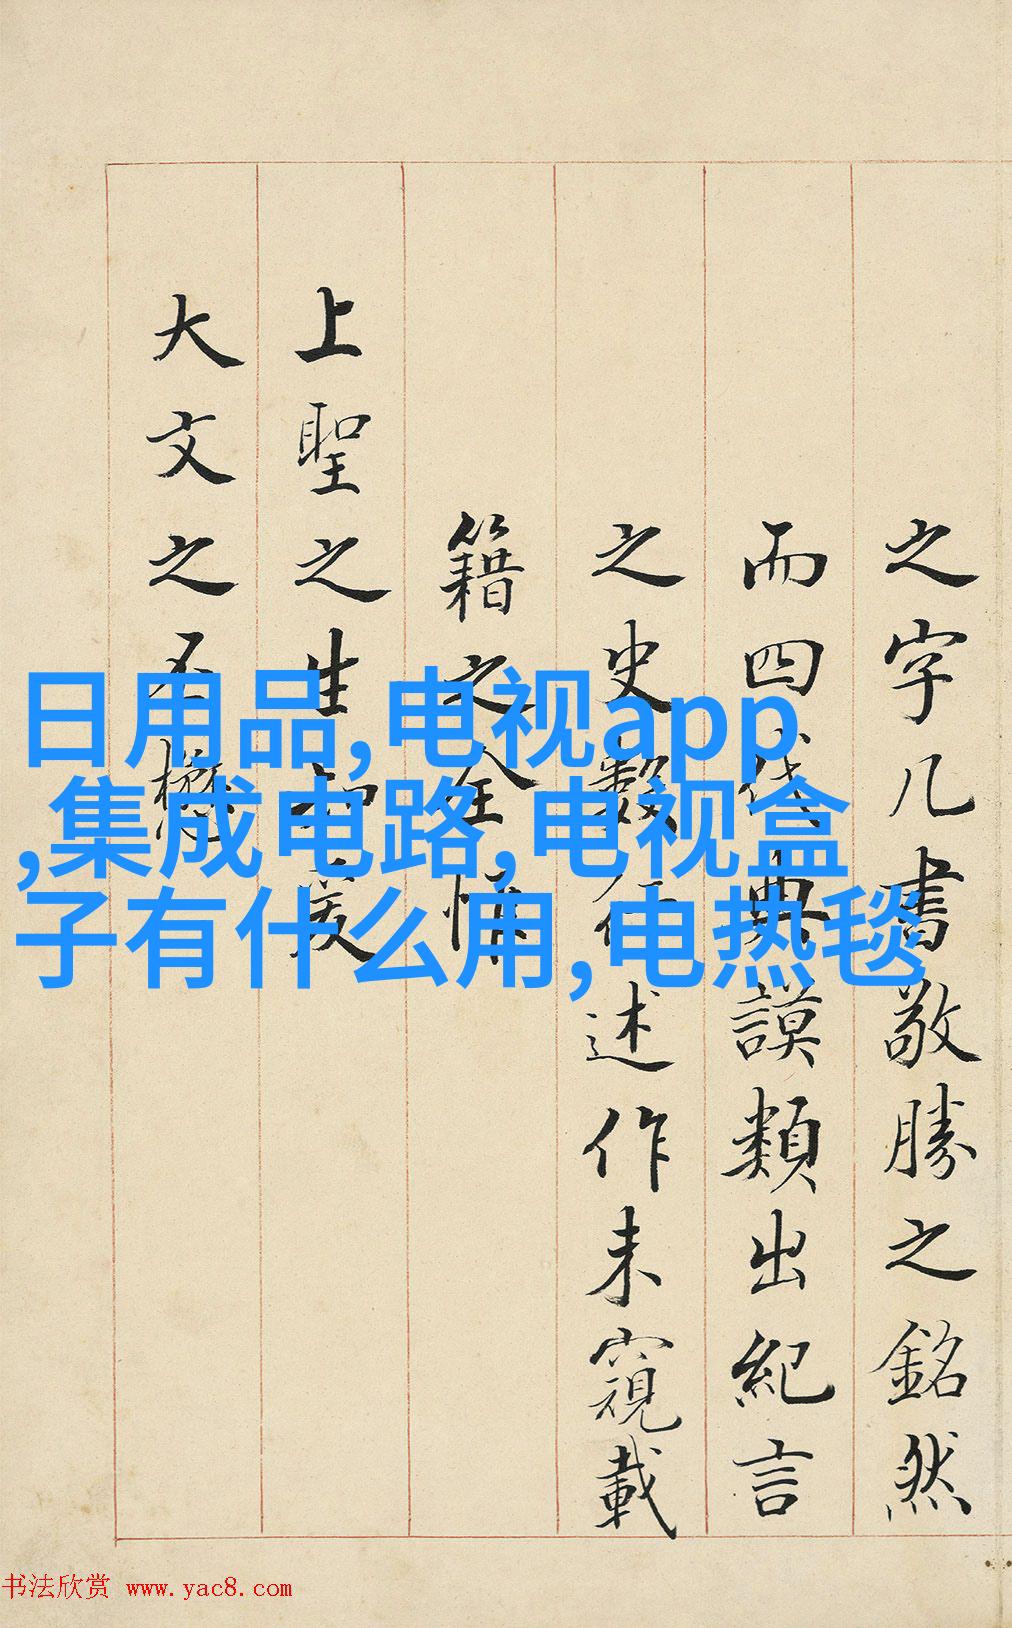 之字几書敬勝之銘然
而四代典謨類出紀言
之史數 述作未窺載
籍之全惟
上聖之生知
大文之不
日用品,电视app
,集成电路,电视盒
子有什么用,电热毯
书法欣赏 www.yac8.com